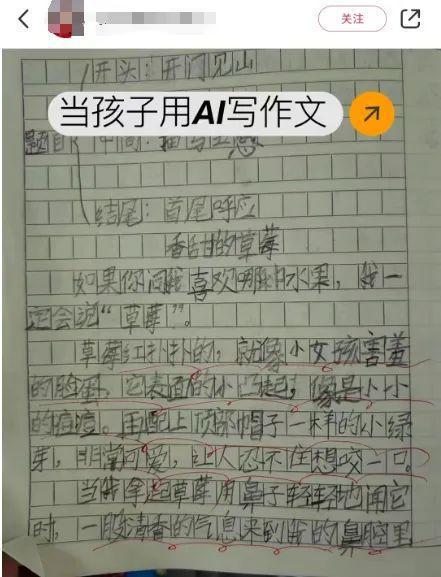 关注
开头：开门见山
当孩子用AI写作文
题目 中间：描写五感
结尾：首尾呼应
香甜的草莓
如果你问我喜欢哪种水果，我一
定会说“草莓”。
草莓红扑扑的，就像小女孩害羞
的脸蛋，它表面的小凸起，像是小小
的痘痘。再配上顶部帽子一样的小绿
芽，非常可爱，让人忍不住想咬一口。
当我拿起草莓用鼻子轻轻地闻它
时，一股清香的气息来到我的鼻腔里